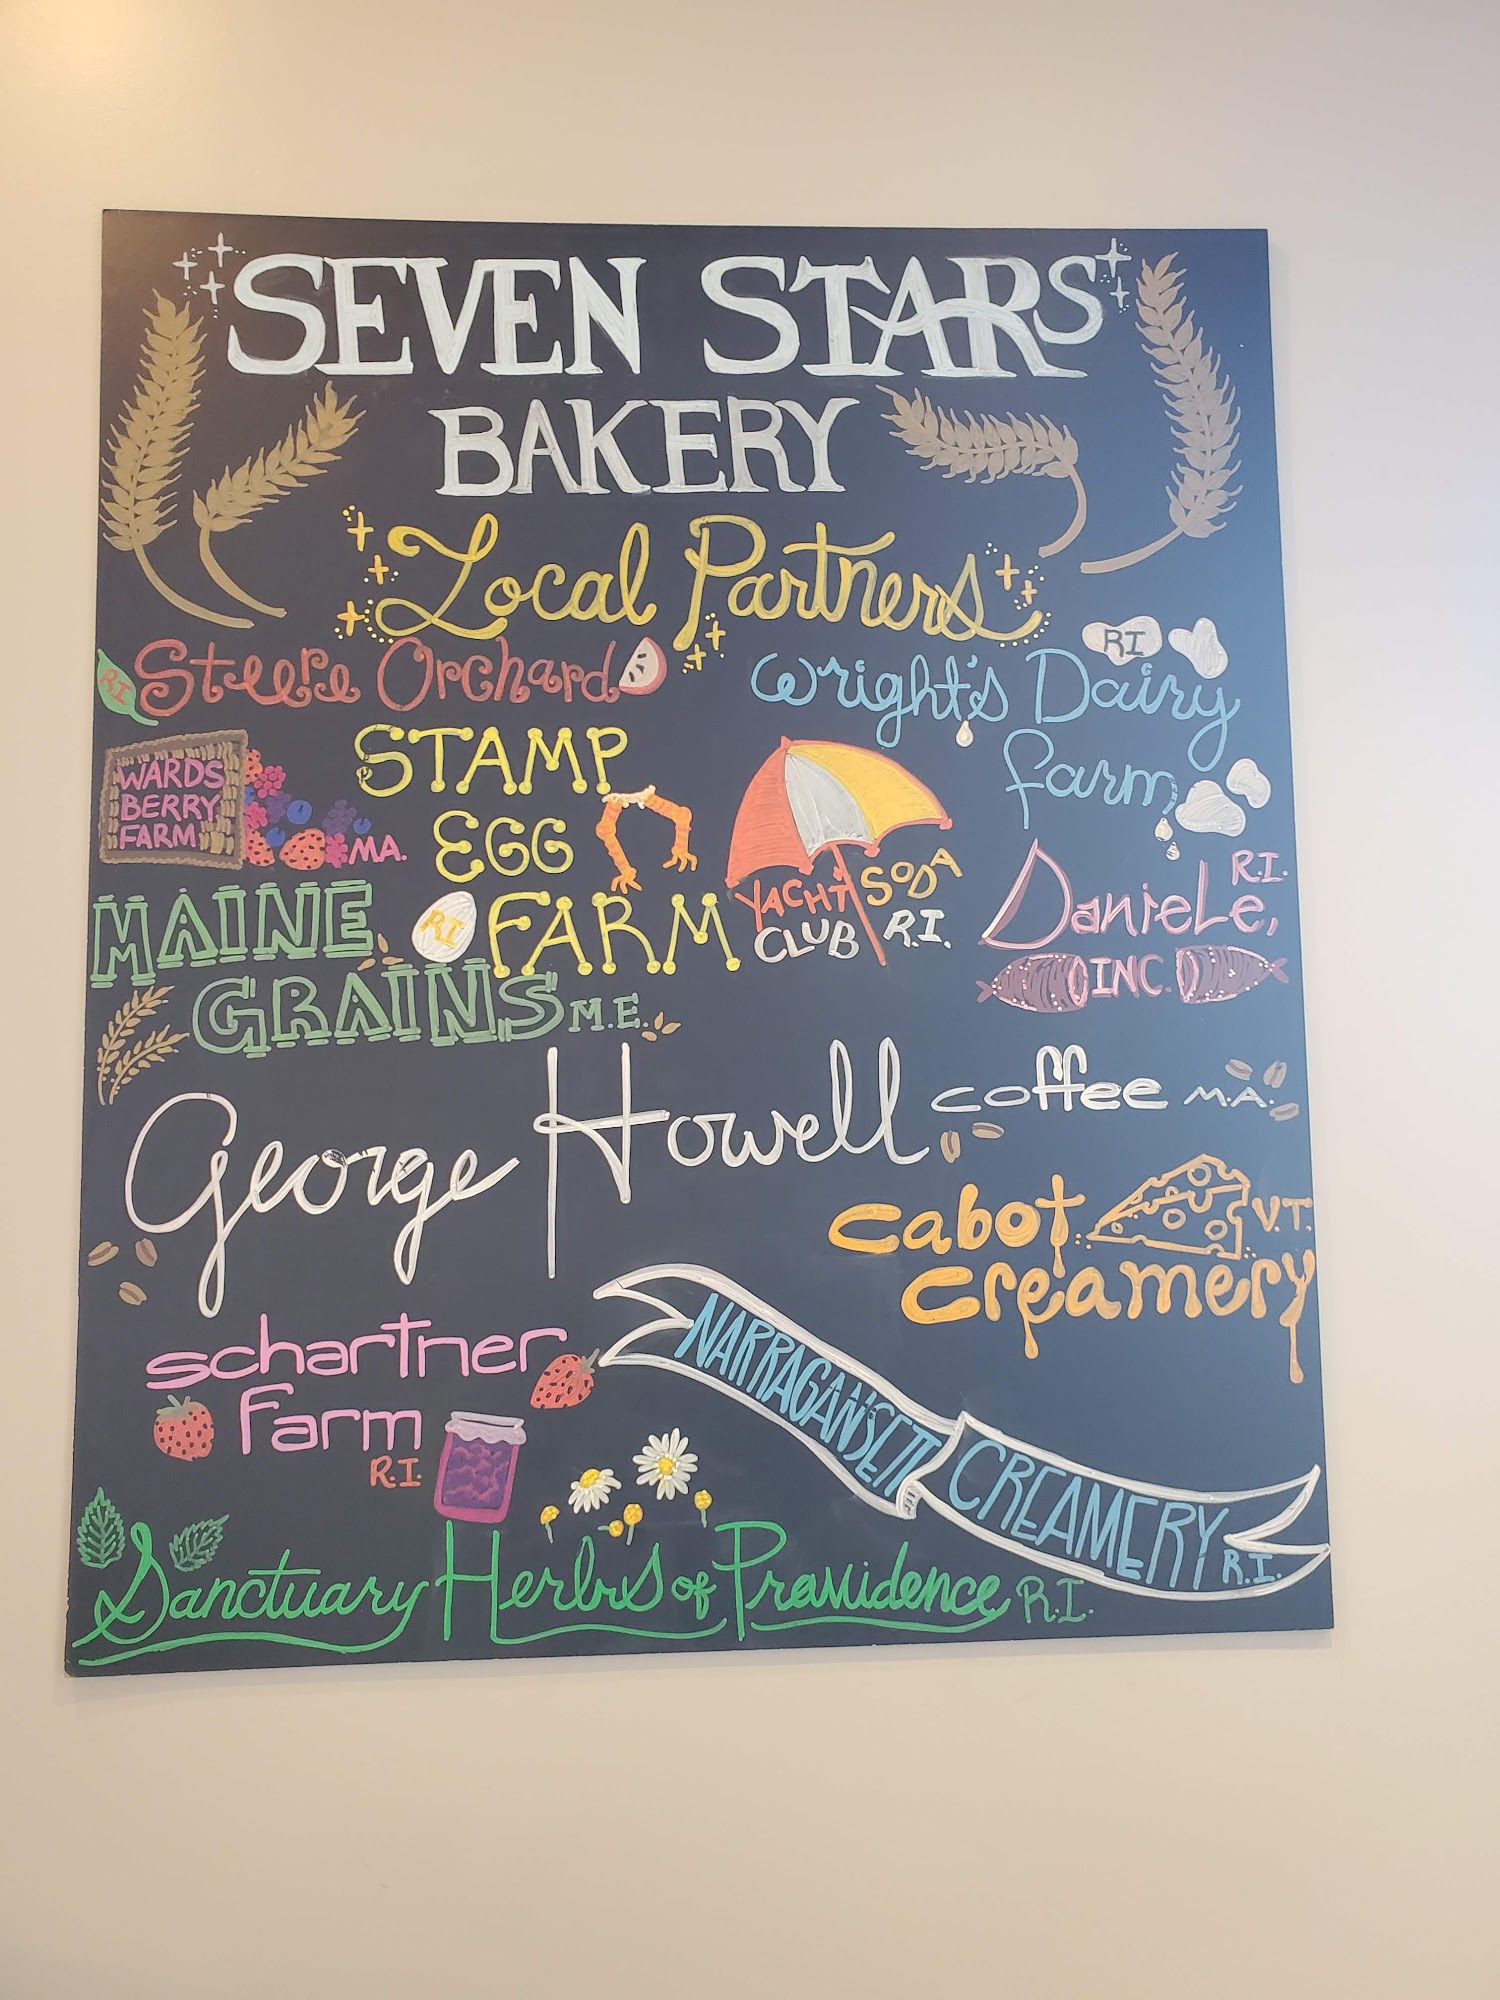 SEVEN STARS
BAKERY
Local Partners
RI Steere Orchard
RI
Wright's Dairy
farm
WARDS
BERRY
FARM
MA.
STAMP
EGG
RI FARM
YACHT
CLUB
SODA
R.I.
R.I.
Daniele,
INC.
MAINE
GRAINS M.E.
George Howell coffee M.A.
cabot V.T.
creamery
schartner
farm
R.I.
NARRAGANSETT CREAMERY R.I.
Sanctuary Herbs of Providence R.I.